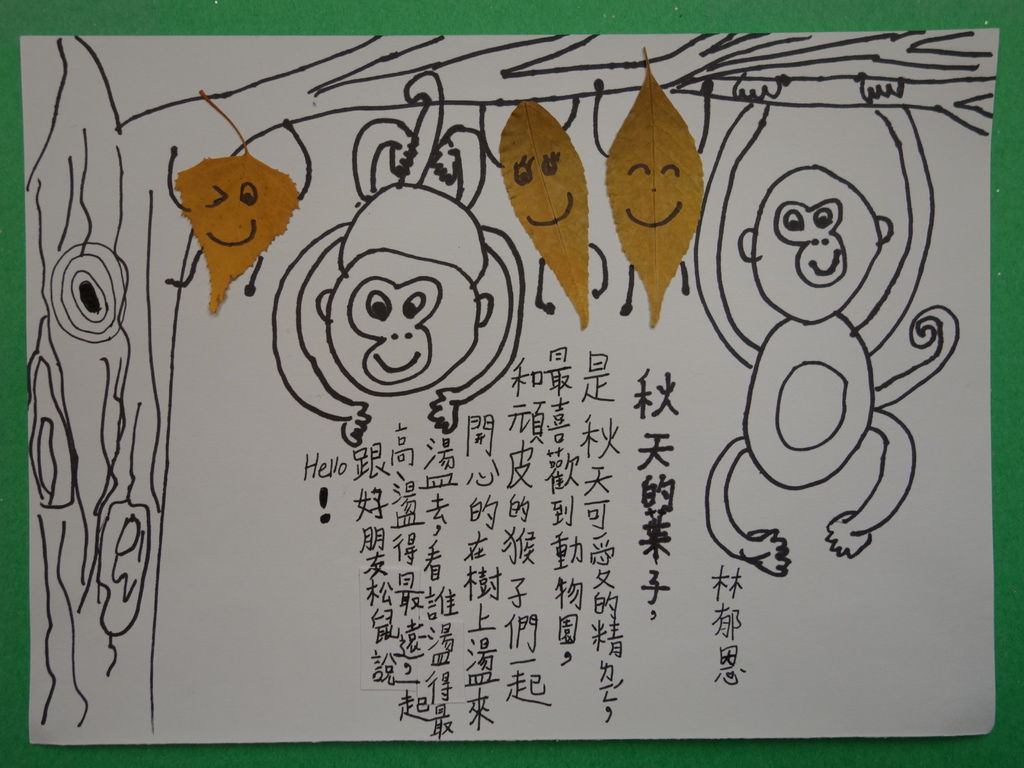 林郁恩
秋天的葉子，
是秋天可愛的精靈，
最喜歡到動物園，
和頑皮的猴子們一起
開心的在樹上盪來
盪去，看誰盪得最
高、盪得最遠，一起
跟好朋友松鼠說
Hello！